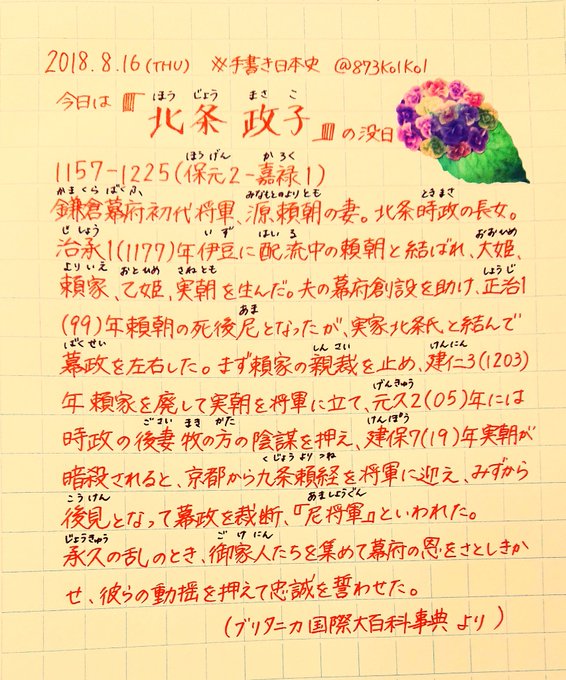 2018.8.16(THU) ※手書き日本史 @873Ko1Ko1
ほう じょう まさ こ
今日は『北条 政子』の没日
ほうげん かろく
1157-1225(保元2-嘉禄1)
かまくら ばくふ みなもとのよりとも ときまさ
鎌倉幕府初代将軍、源頼朝の妻。北条時政の長女。
じしょう いず はいる おおひめ
治承1(1177)年伊豆に配流中の頼朝と結ばれ、大姫、
よりいえ おとひめ さねとも しょうじ
頼家、乙姫、実朝を生んだ。夫の幕府創設を助け、正治1
あま
(99)年頼朝の死後尼となったが、実家北条氏と結んで
ばくせい しんさい けんにん
幕政を左右した。まず頼家の親裁を止め、建仁3(1203)
げんきゅう
年頼家を廃して実朝を将軍に立て、元久2(05)年には
ごさい まき かた けんぽう
時政の後妻牧の方の陰謀を押え、建保7(19)年実朝が
くじょう よりつね
暗殺されると、京都から九条頼経を将軍に迎え、みずから
こうけん あましょうぐん
後見となって幕政を裁断、『尼将軍』といわれた。
じょうきゅう ごけにん
承久の乱のとき、御家人たちを集めて幕府の恩をさとしきか
せ、彼らの動揺を押えて忠誠を誓わせた。
(ブリタニカ国際大百科事典 より)